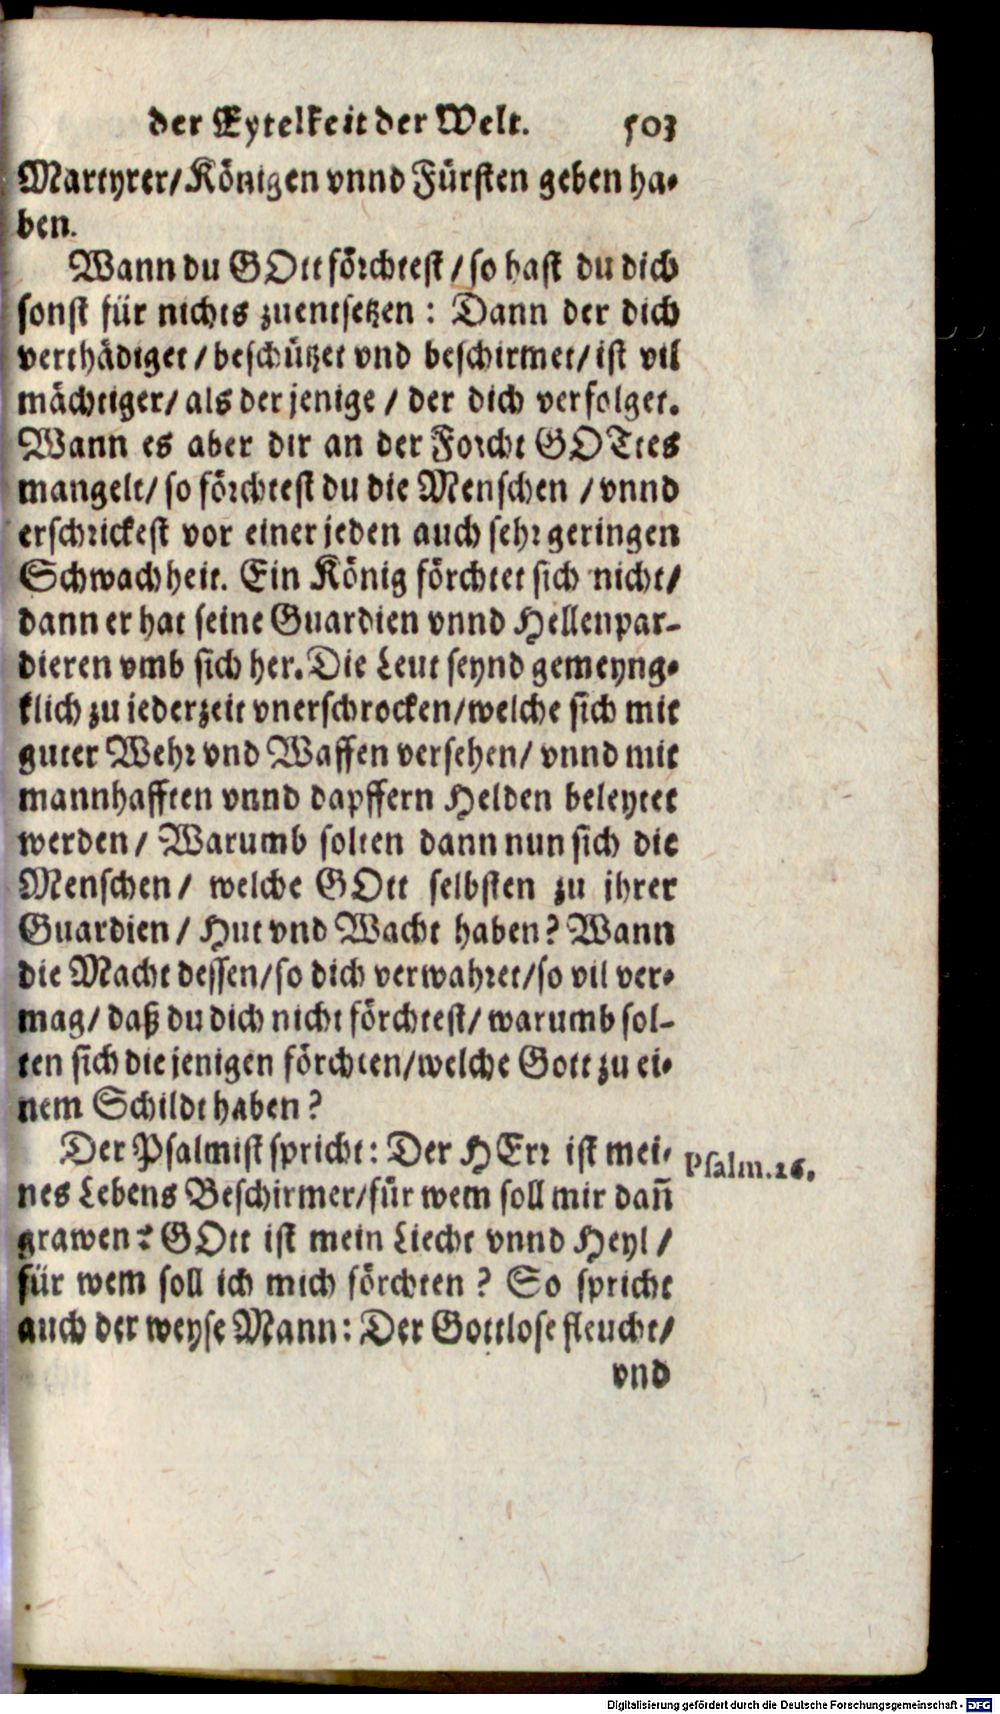 der Eytelkeit der Welt. 503
Martyrer/ Königen vnnd Fürsten geben ha-
ben.
Wann du GOtt förchtest / so hast du dich
sonst für nichts zuentsetzen : Dann der dich
verthädiget / beschützet vnd beschirmet/ ist vil
mächtiger/ als der jenige / der dich verfolget.
Wann es aber dir an der Forcht GOTtes
mangelt/ so förchtest du die Menschen / vnnd
erschrickest vor einer jeden auch sehr geringen
Schwachheit. Ein König förchtet sich nicht/
dann er hat seine Guardien vnnd Hellenpar-
dieren vmb sich her. Die Leut seynd gemeyng-
klich zu jederzeit vnerschrocken/ welche sich mit
guter Wehr vnd Waffen versehen/ vnnd mit
mannhafften vnnd dapffern Helden beleytet
werden/ Warumb solten dann nun sich die
Menschen/ welche GOtt selbsten zu ihrer
Guardien/ Hut vnd Wacht haben? Wann
die Macht dessen/ so dich verwahret/ so vil ver-
mag/ daß du dich nicht förchtest/ warumb sol-
ten sich die jenigen förchten/ welche Gott zu ei-
nem Schildt haben?
Der Psalmist spricht: Der HErr ist mei- Psalm. 26.
nes Lebens Beschirmer/ für wem soll mir dañ
grawen? GOtt ist mein Liecht vnnd Heyl /
für wem soll ich mich förchten ? So spricht
auch der weyse Mann: Der Gottlose fleucht/
vnd
Digitalisierung gefördert durch die Deutsche Forschungsgemeinschaft - DFG